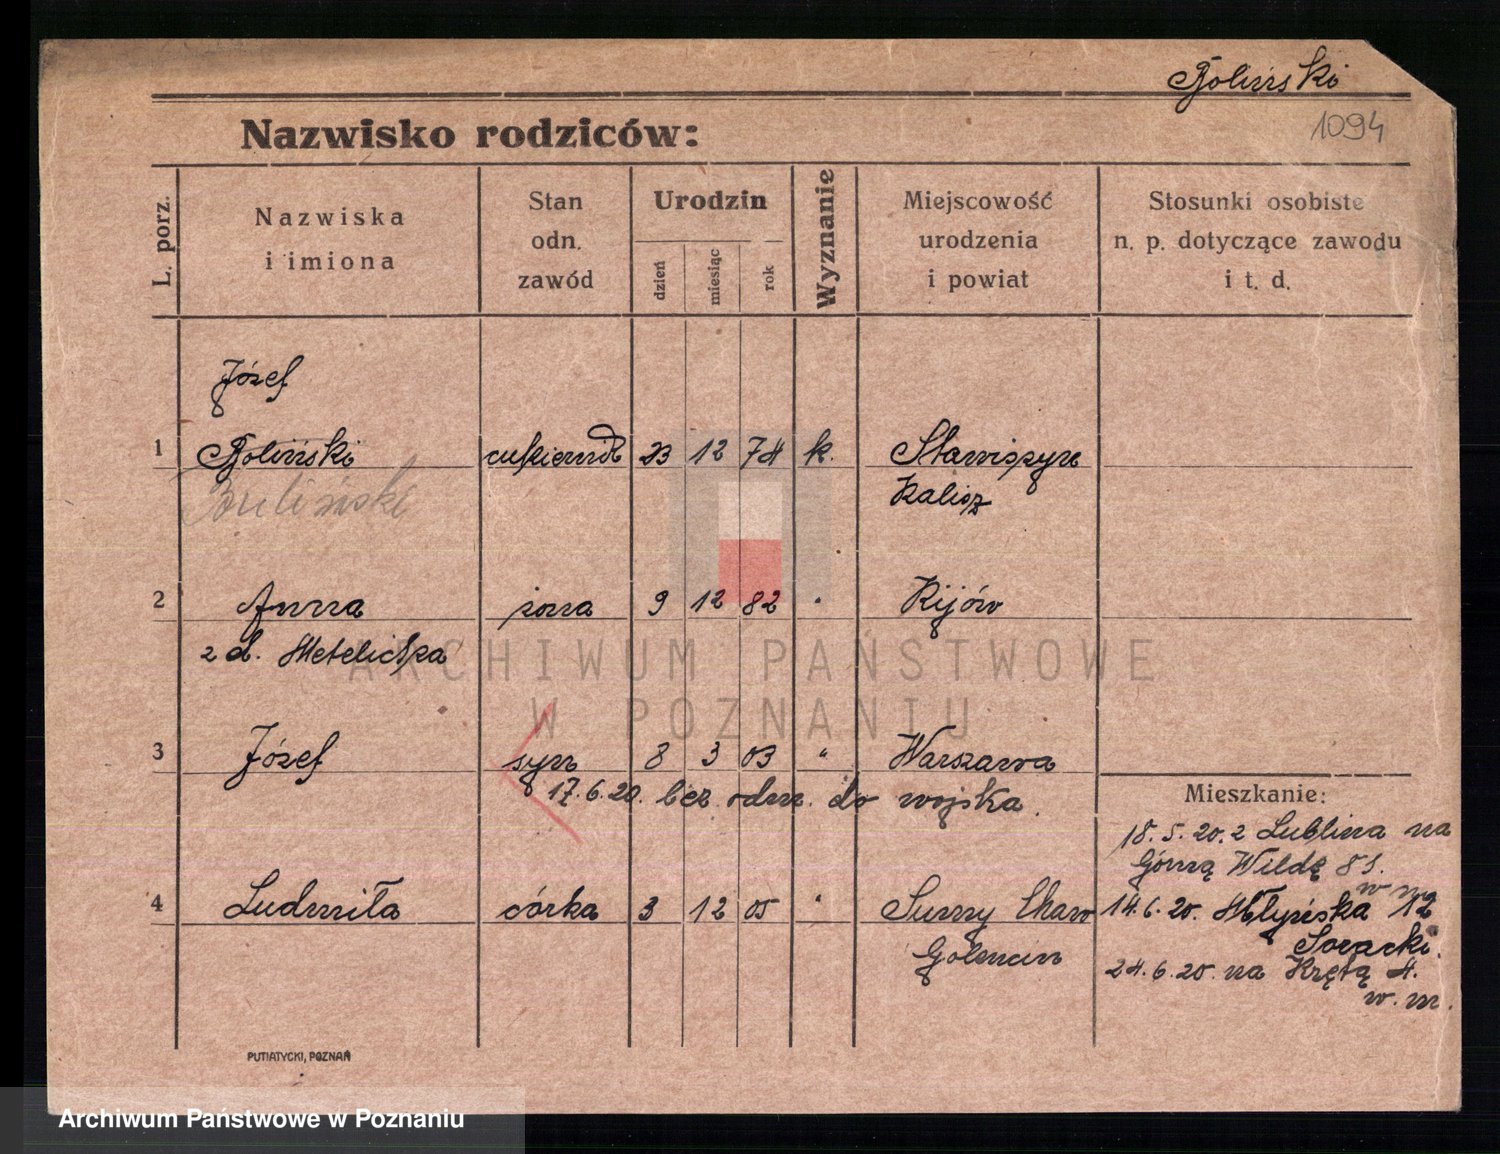 Boliński
1094
Nazwisko rodziców:
L. porz.
Nazwiska
i imiona
Stan
odn.
zawód
Urodzin
dzień
miesiąc
rok
Wyznanie
Miejscowość
urodzenia
i powiat
Stosunki osobiste
n. p. dotyczące zawodu
i t. d.
Józef
1 Boliński cukiernik 23 12 74 k. Stawiszyn
Kalisz
Buliński
2 Anna żona 9 12 82 " Kijów
z d. Metelicka
3 Józef syn 8 3 03 " Warszawa
17.6.20. bez odm. do wojska.
Mieszkanie:
18.5.20. z Lublina na
Górną Wildę 81.
w m
4 Ludmiła córka 3 12 05 " Sumy
14.6.20. Młyńska 12
Soracki.
24.6.20. na Krętą 4.
w. m.
PUTIATYCKI, POZNAŃ
ARCHIWUM PAŃSTWOWE
W POZNANIU
Archiwum Państwowe w Poznaniu